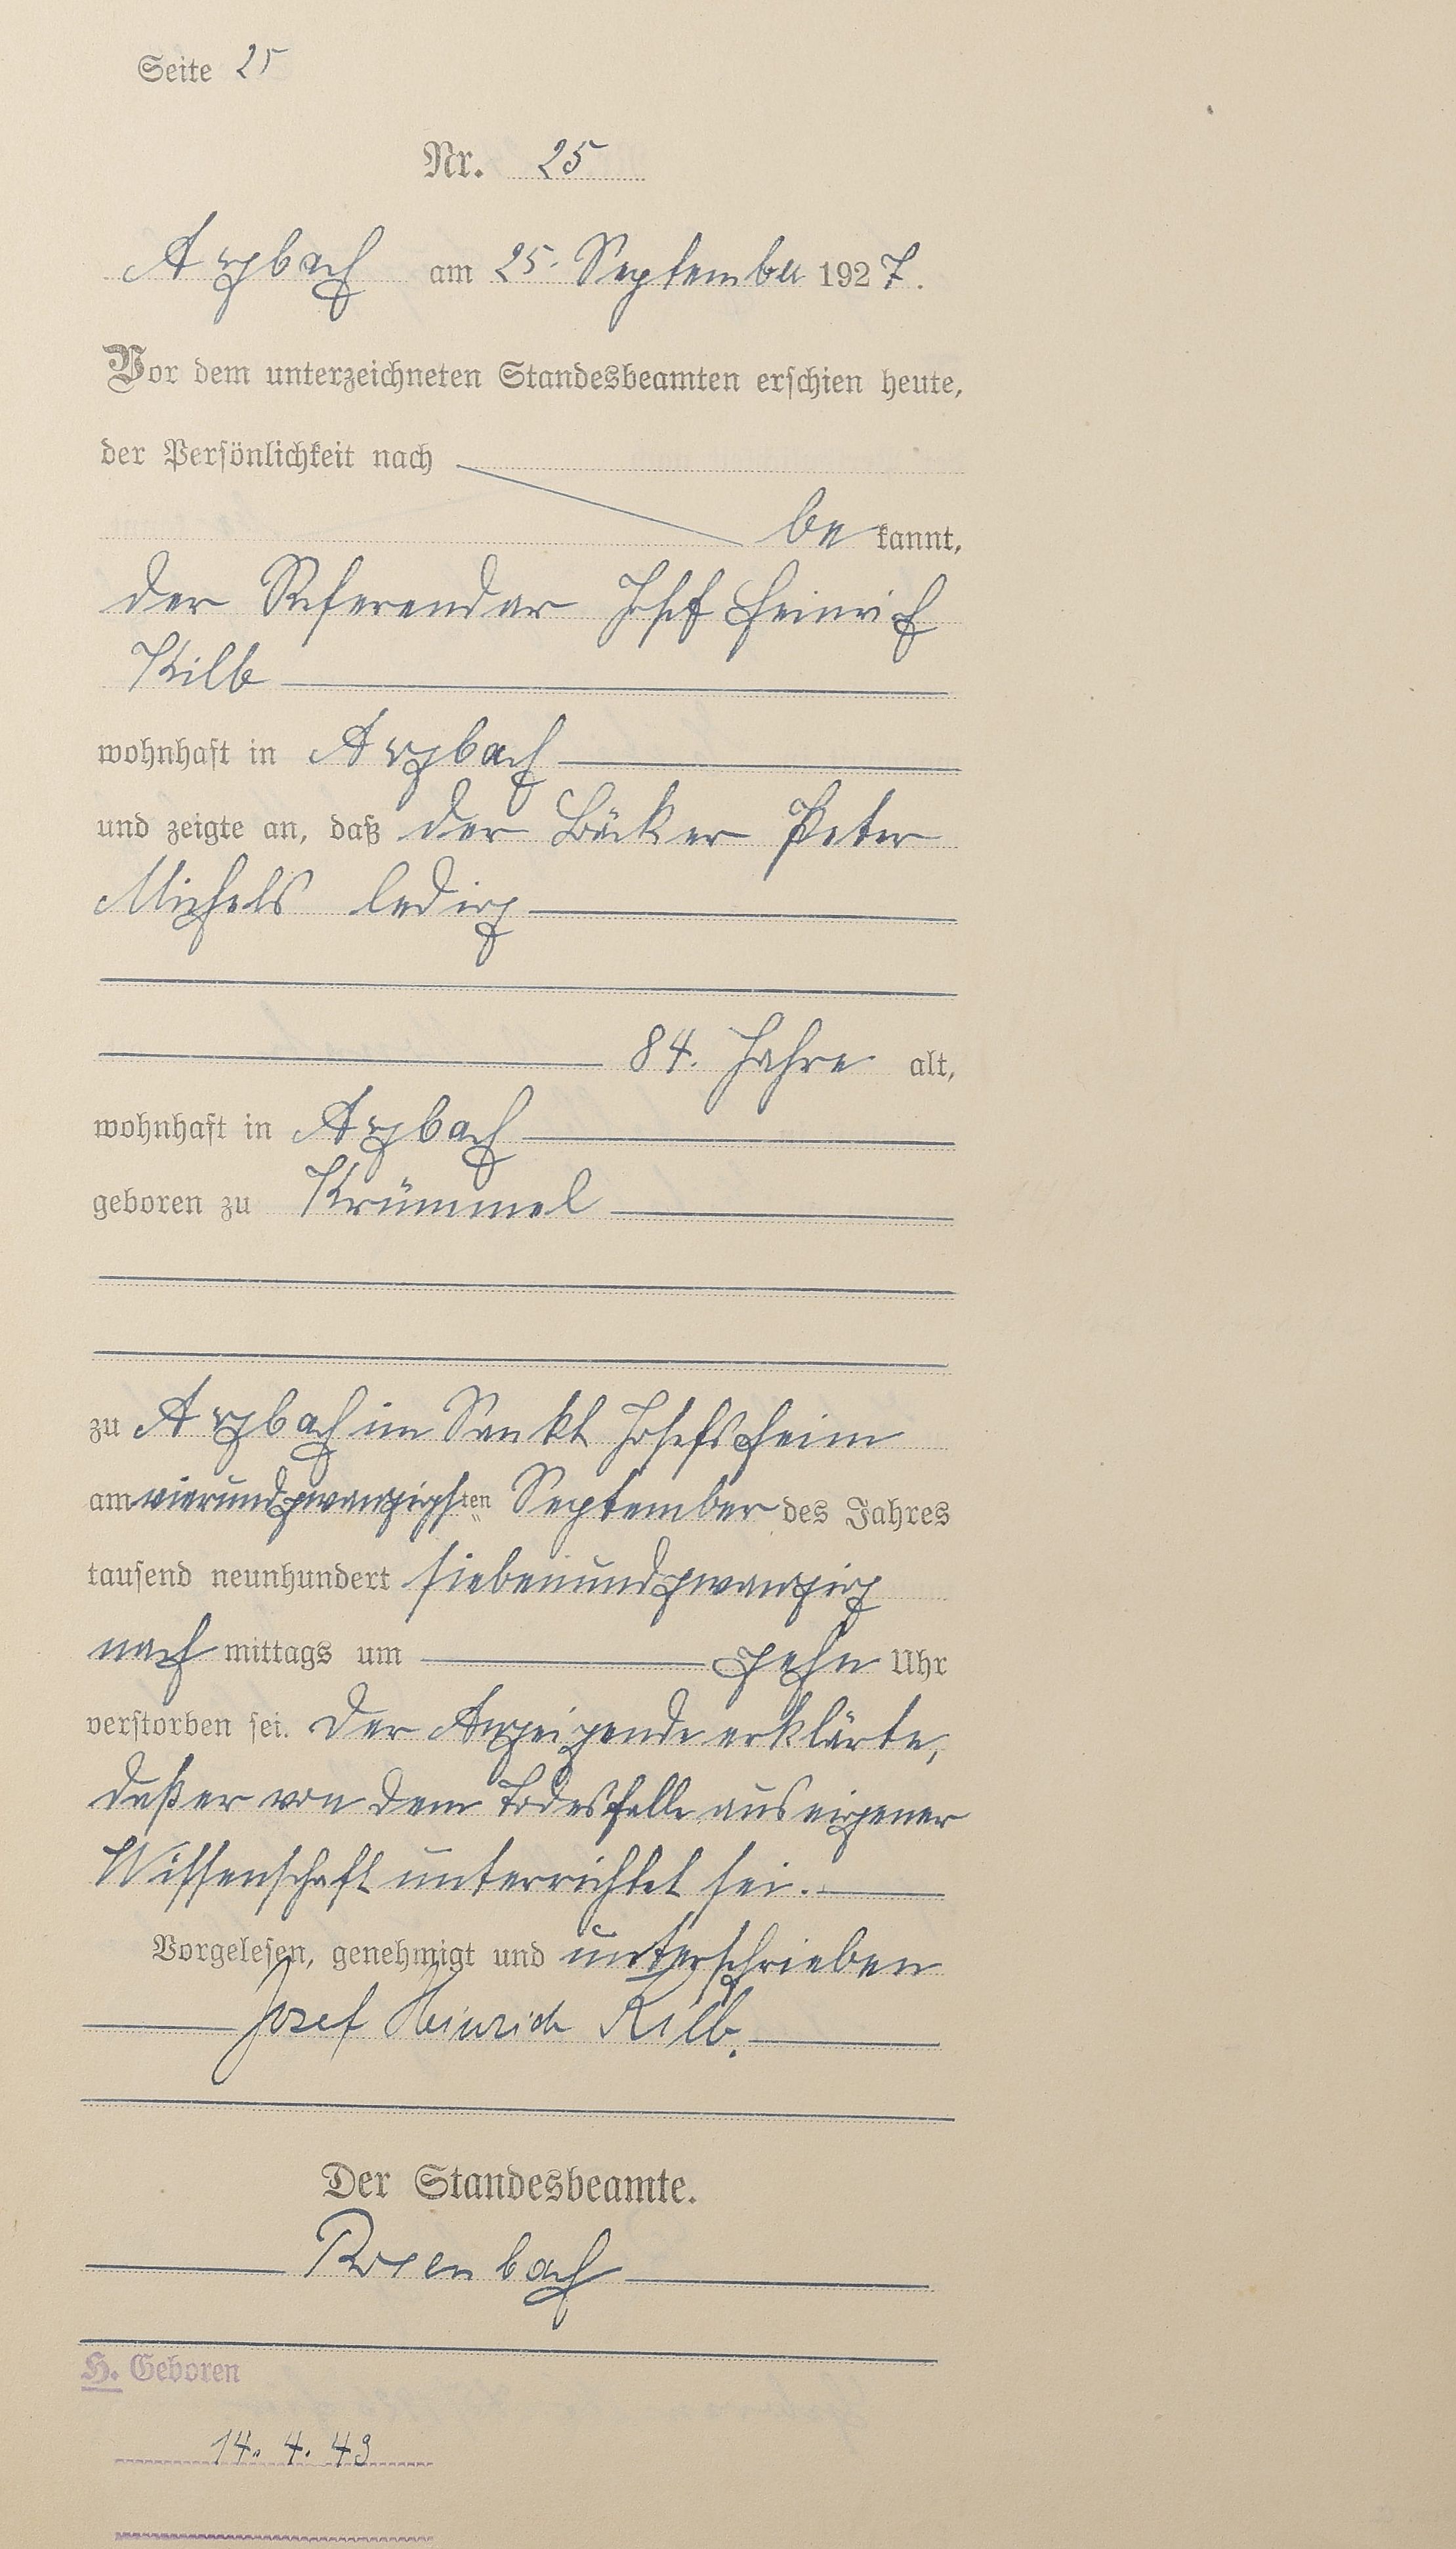 Seite 25
Nr. 25
Arzbach am 25. September 1927.
Vor dem unterzeichneten Standesbeamten erschien heute,
der Persönlichkeit nach
be kannt,
der Referendar Josef Heinrich
Kilb
wohnhaft in Arzbach
und zeigte an, daß der Bäcker Peter
Michels ledig
84. Jahre alt,
wohnhaft in Arzbach
geboren zu Krümmel
zu Arzbach im Sankt Josefsheim
am vierundzwanzigsten September des Jahres
tausend neunhundert siebenundzwanzig
nach mittags um zehn Uhr
verstorben sei. Der Anzeigende erklärte,
daß er von dem Todesfalle aus eigener
Wissenschaft unterrichtet sei.
Vorgelesen, genehmigt und unterschrieben
Josef Heinrich Kilb.
Der Standesbeamte.
Rosenbach
H. Geboren
14. 4. 43